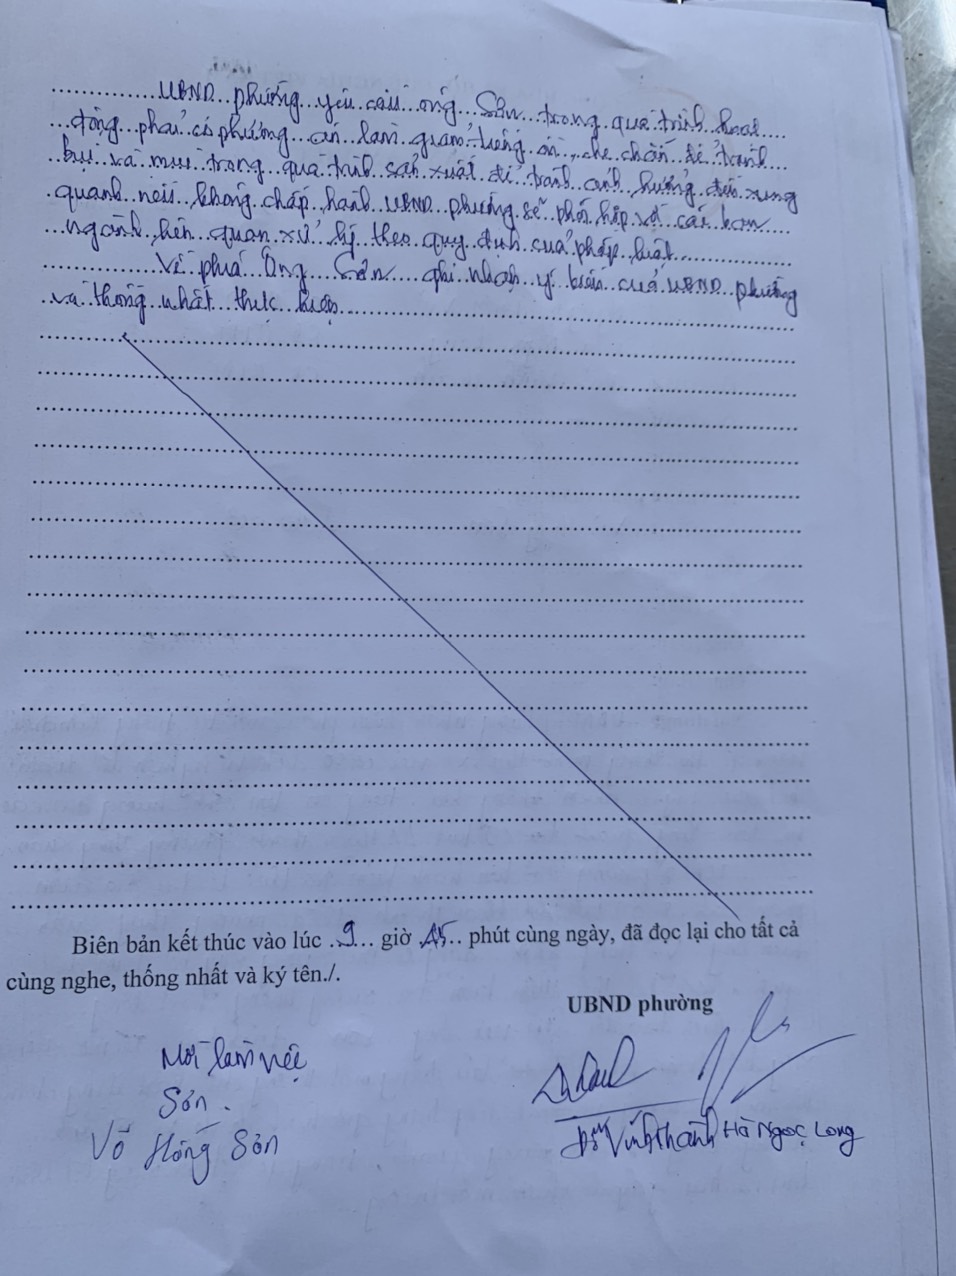 UBND phường yêu cầu ông Sơn trong quá trình hoạt
động phải có phương án làm giảm tiếng ồn, che chắn để tránh
bụi và mùi trong quá trình sản xuất để tránh ảnh hưởng đến xung
quanh nếu không chấp hành UBND phường sẽ phối hợp với các ban
ngành liên quan xử lý theo quy định của pháp luật
Về phía Ông Sơn ghi nhận ý kiến của UBND phường
và thống nhất thực hiện
Biên bản kết thúc vào lúc 9 giờ 45 phút cùng ngày, đã đọc lại cho tất cả
cùng nghe, thống nhất và ký tên./.
UBND phường
Sơn
Võ Hồng Sơn
Vĩnh Thành Hà Ngọc Long